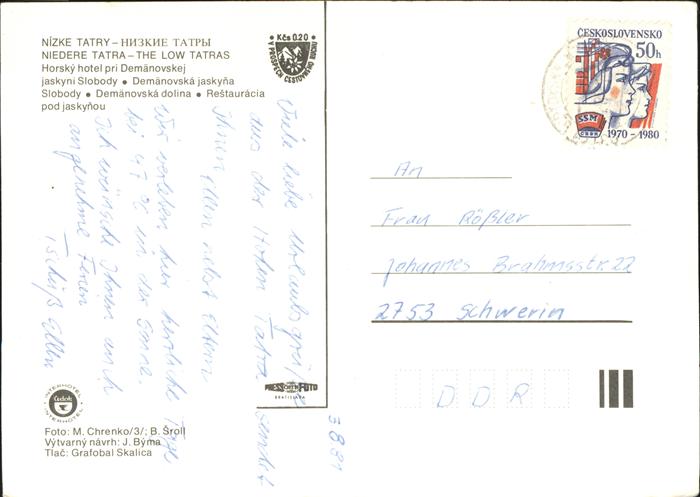 NÍZKE TATRY – НИЗКИЕ ТАТРЫ
NIEDERE TATRA – THE LOW TATRAS
Horský hotel pri Demänovskej
jaskyni Slobody • Demänovská jaskyňa
Slobody • Demänovská dolina • Reštaurácia
pod jaskyňou
Kčs 0.20
V PROSPECH CESTOVNÉHO RUCHU
ČESKOSLOVENSKO
50h
SSM
1970 – 1980
Viele liebe Urlaubsgrüße
aus der Hohen Tatra sendet
Ihnen Ellen nebst Eltern
Wir verleben hier herrliche Tage
bei 47 °C in der Sonne.
Ich wünsche Ihnen auch
angenehme Ferien
Tschüß Ellen
3 8 81
An
Frau Rößler
Johannes Brahmsstr. 22
2753 Schwerin
DDR
PRESSFOTO
BRATISLAVA
INTERHOTEL
Čedok
INTERHOTEL
Foto: M. Chrenko/3/; B. Šroll
Výtvarný návrh: J. Býma
Tlač: Grafobal Skalica